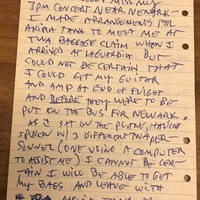 MISS MY
3PM CONCERT NEAR NEWARK -
I MADE ARRANGEMENTS FOR
AKIRA TANA TO MEET ME AT
TWA BAGGAGE CLAIM WHEN I
ARRIVED AT LAGUARDIA BUT
COULD NOT BE CERTAIN THAT
I COULD GET MY GUITAR
AND AMP AT END OF FLIGHT
AND BEFORE THEY WERE TO BE
PUT ON THE BUS FOR NEWARK.
AS I SAT ON THE PLANE, HAVING
SPOKEN W/ 3 DIFFERENT TWA PER-
SONNEL (ONE USING A COMPUTER
TO ASSIST ME) I CANNOT BE CER-
TAIN I WILL BE ABLE TO GET
MY BAGS AND LEAVE WITH